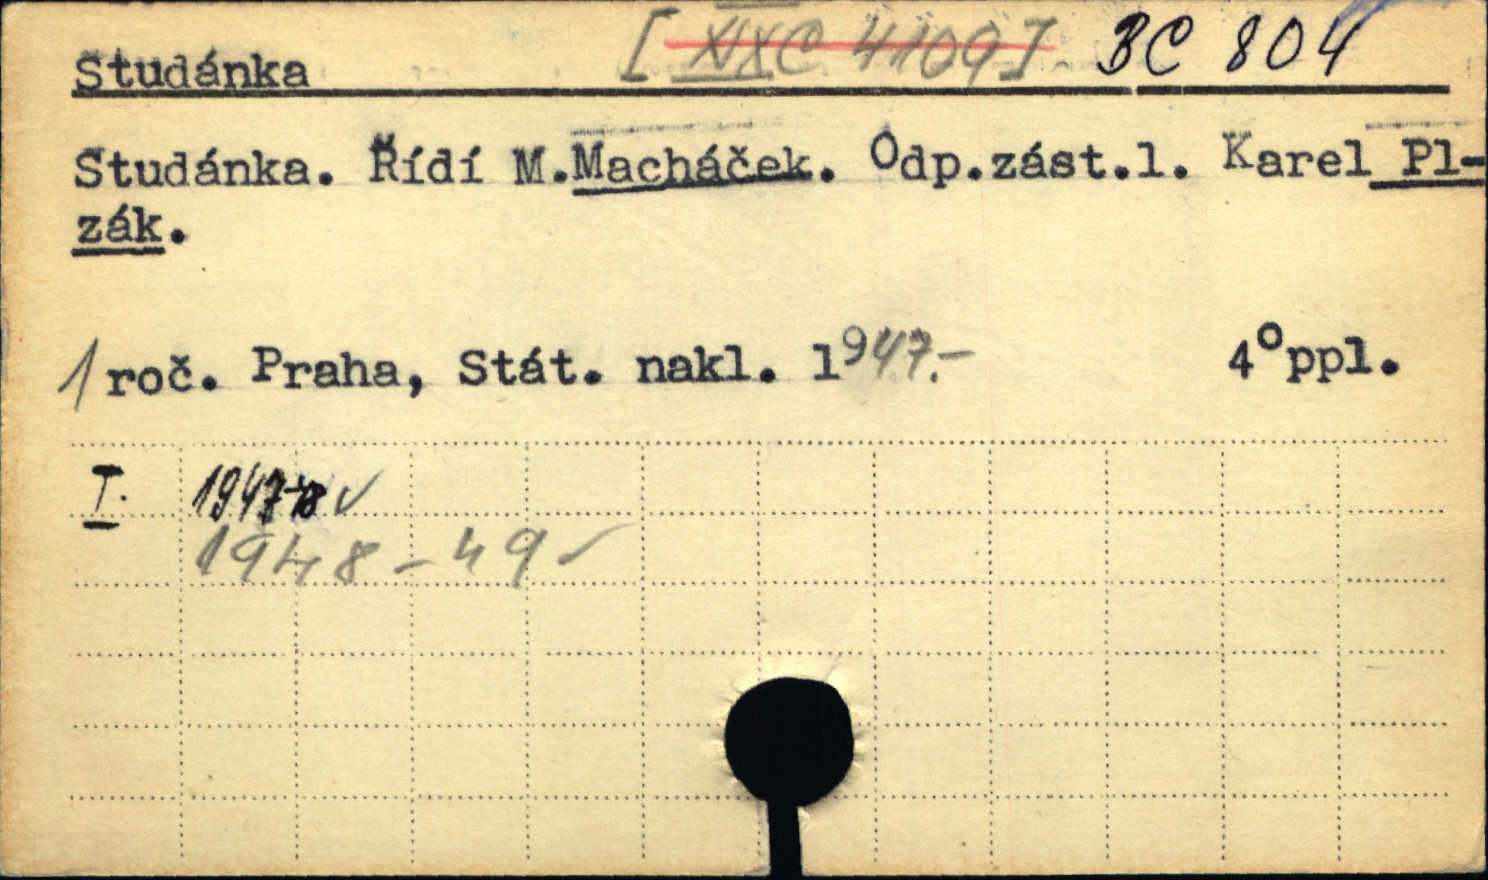 Studánka [XIXC 4109] BC 804
Studánka. Řídí M.Macháček. Odp.zást.l. Karel Pl-
zák.
1 roč. Praha, Stát. nakl. 1947.- 4°ppl.
I. 1947-48 ✓
1948-49 ✓